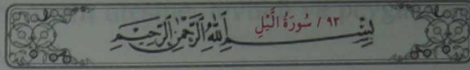 ٩٢ / سُورَةُ الَّيْلِ
بِسْمِ اللَّهِ الرَّحْمَٰنِ الرَّحِيمِ